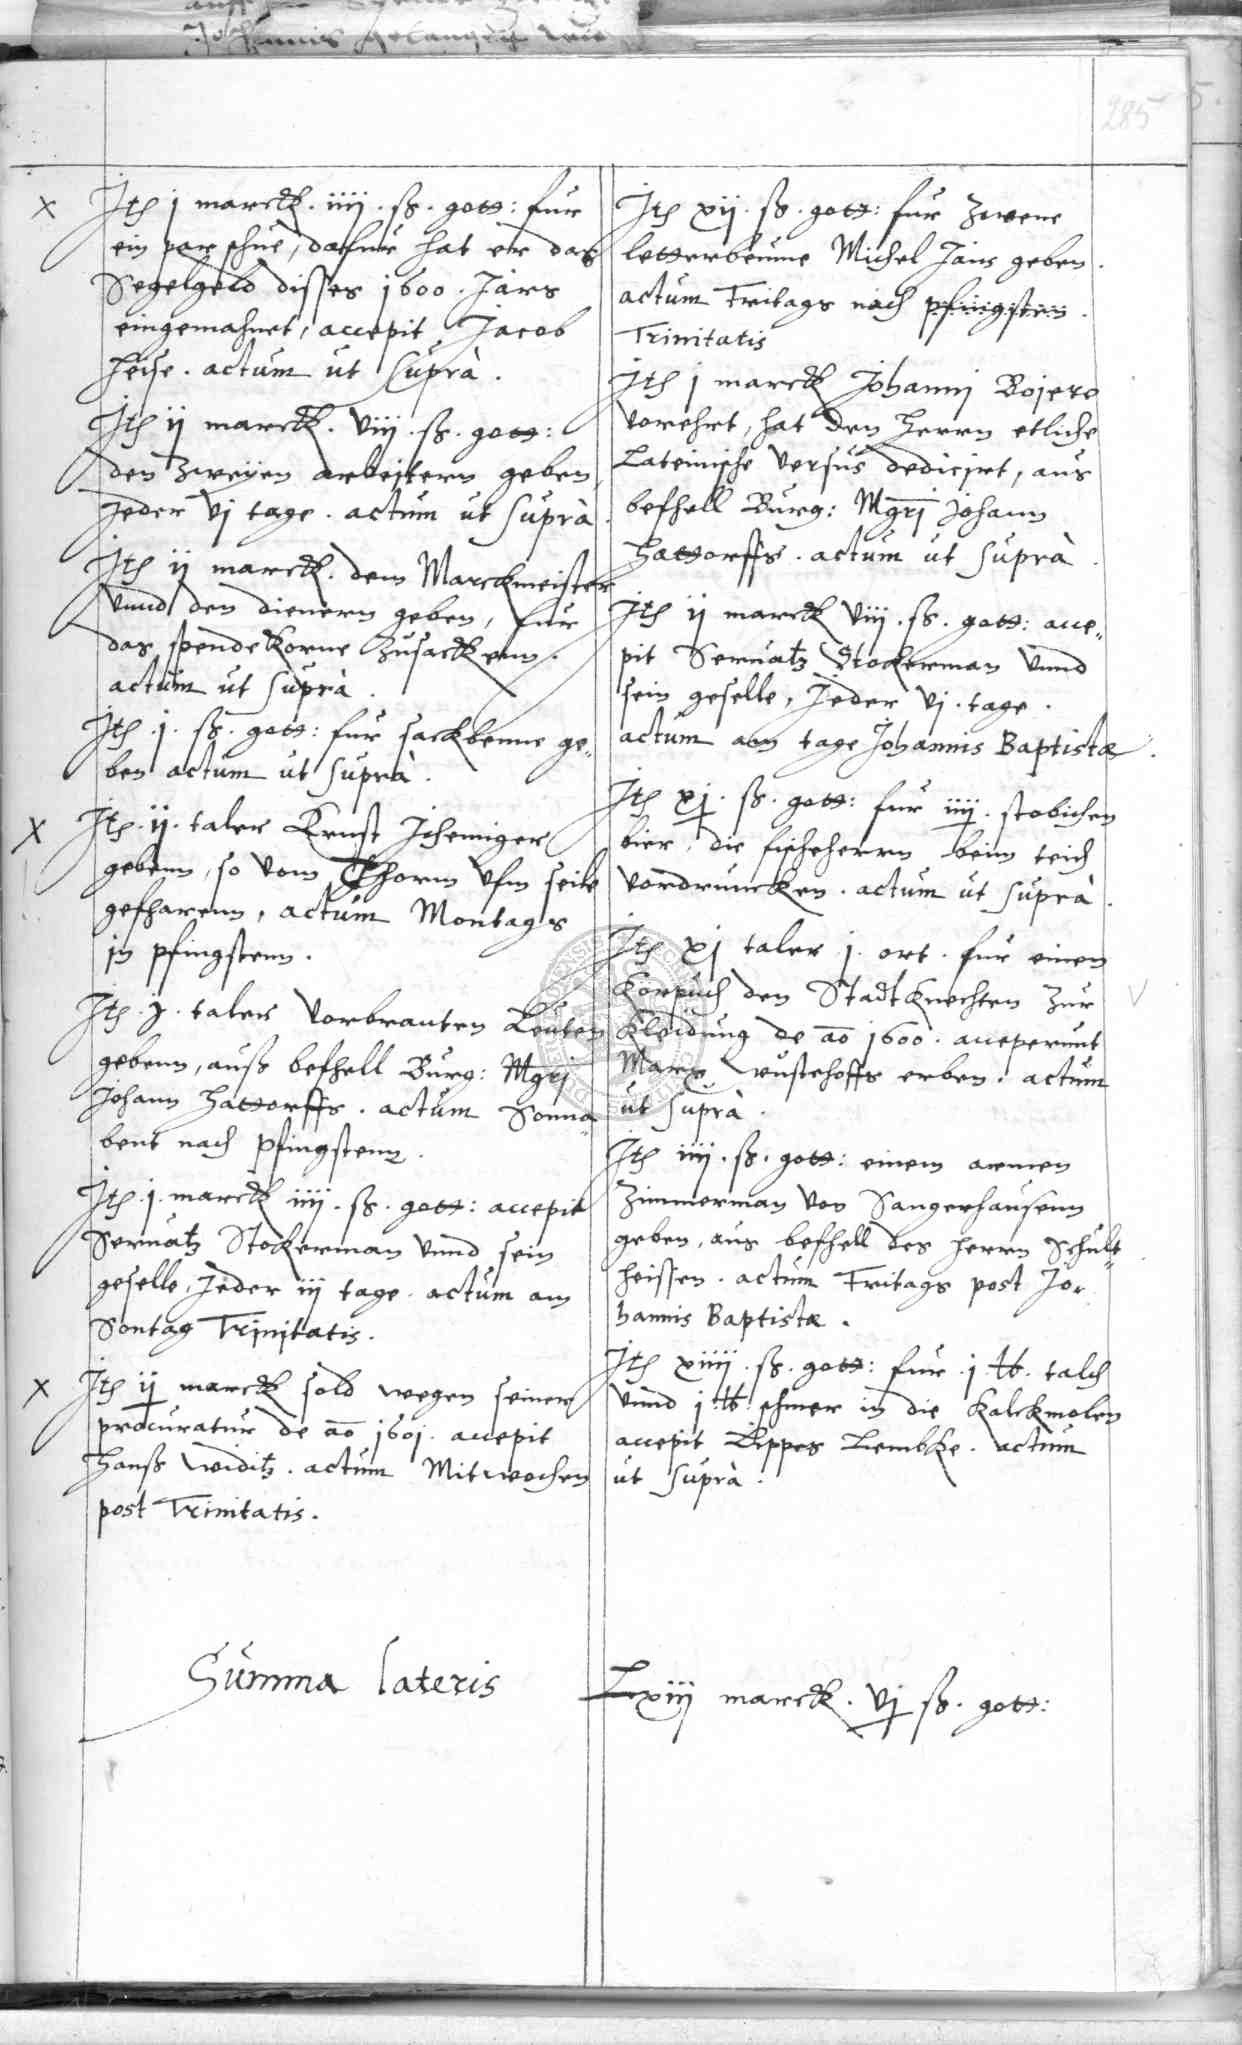 285
Jt͠ j marck. iiij. ß. gott: fur
ein par schue, dafur hat er das
Segelgeld disses 1600. Jars
eingemahnet, accepit Jacob
Heise. actum ut suprà.
Jt͠ ij marck. viij. ß. gott:
den zweÿen arbeitern geben,
Jeder vj tage. actum ut suprà.
Jt͠ ij marck. dem Marckmeister
vnnd den dienern geben, fur
das spendekorne zusackenn.
actum ut suprà.
Jt͠ .j. ß. gott: fur sackbenne ge„
ben actum ut suprà.
Jt͠ .ij. taler Ernst
gebenn, so vom Thorm vfm seile
gefharenn, actum Montags
in pfingstenn.
Jt͠ . taler Vorbranten Leuten
gebenn, auß befhell Burg: Mgrj
Johann Hattorffs. actum Sonna„
bent nach pfingstenn.
Jt͠ .j. marck iiij. ß. gott: accepit
Seruatz Stokerman vnnd sein
geselle, Jeder iij tage. actum am
Sontag Trinitatis.
Jt͠ ij marck sold wegen seiner
procuratur de ao 1601. accepit
Hanß widitz. actum Mitwochen
post Trinitatis.
Jt͠ xij. ß. gott: fur zwene
letterbeume Michel Jans geben.
actum Fritags nach pfingsten.
Trinitatis
Jt͠ j marck Johannj Bojero
vorehrt, hat den Herrn etliche
Lateinische versus dedicjrt, aus
befhell Burg: Mgrj Johann
Hattorffs. actum ut suprà.
Jt͠ ij marck viij. ß. gott: acce„
pit Seruatz Stokerman vnnd
sein geselle, Jeder vj. tage.
actum am tage Johannis Baptistæ.
Jt͠ xj. ß. gott: fur iiij. stobichen
bier, die fischeherrn beim teich
vordruncken. actum ut suprà.
Jt͠ xj taler j. ort. fur einen
den Stadtknechten zur
Kleidung de ao 1600. acceperunt
Marx wustehoffs erben. actum
ut suprà.
Jt͠ iiij. ß. gott: einem armen
Zimmerman von Sangerhausenn
geben, aus befhell des herrn Schult„
heissen. actum Fritags post Jo„
hannis Baptistæ.
Jt͠ xiiij. ß. gott: fur j. ℔. talch
vnnd j ℔. schmer in die Kalckmolen
accepit Lippes Lembke. actum
ut suprà.
Summa lateris Lxiij marck. vj ß. gott: